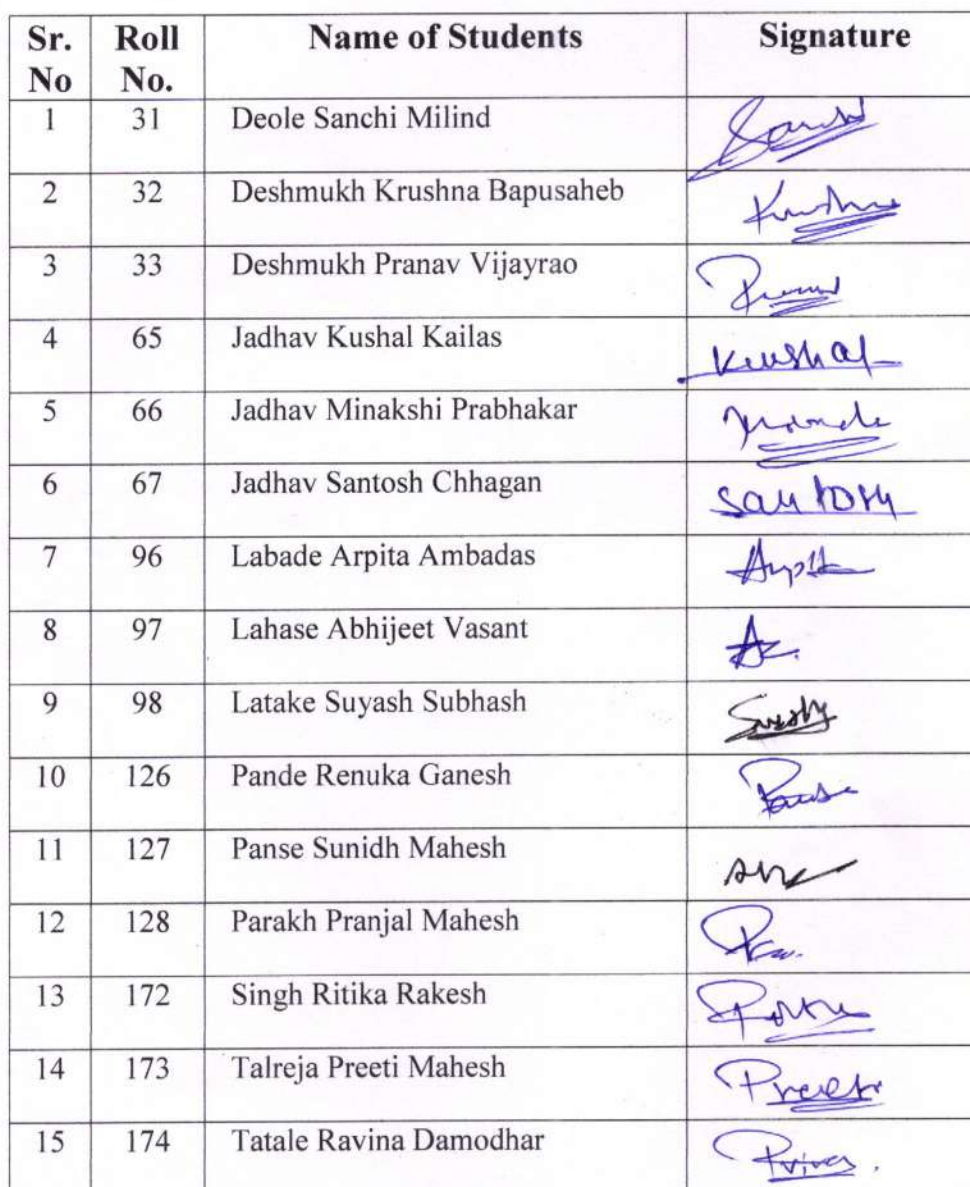 Sr. No Roll No. Name of Students Signature
1 31 Deole Sanchi Milind
2 32 Deshmukh Krushna Bapusaheb
3 33 Deshmukh Pranav Vijayrao
4 65 Jadhav Kushal Kailas Kushal
5 66 Jadhav Minakshi Prabhakar
6 67 Jadhav Santosh Chhagan Santosh
7 96 Labade Arpita Ambadas
8 97 Lahase Abhijeet Vasant
9 98 Latake Suyash Subhash
10 126 Pande Renuka Ganesh
11 127 Panse Sunidh Mahesh
12 128 Parakh Pranjal Mahesh
13 172 Singh Ritika Rakesh
14 173 Talreja Preeti Mahesh Preeti
15 174 Tatale Ravina Damodhar